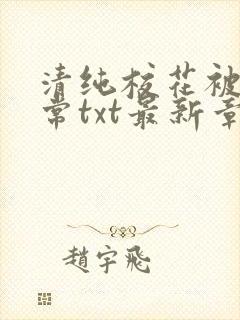 清纯校花被
常txt最新章
趙宇飛